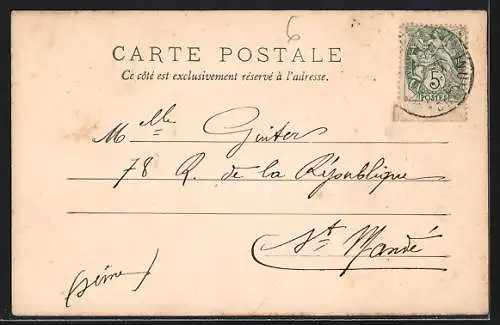 6
CARTE POSTALE
Ce côté est exclusivement réservé à l'adresse.
5c
POSTES
Melle
78 R. de la République
St Mandé
(Seine)